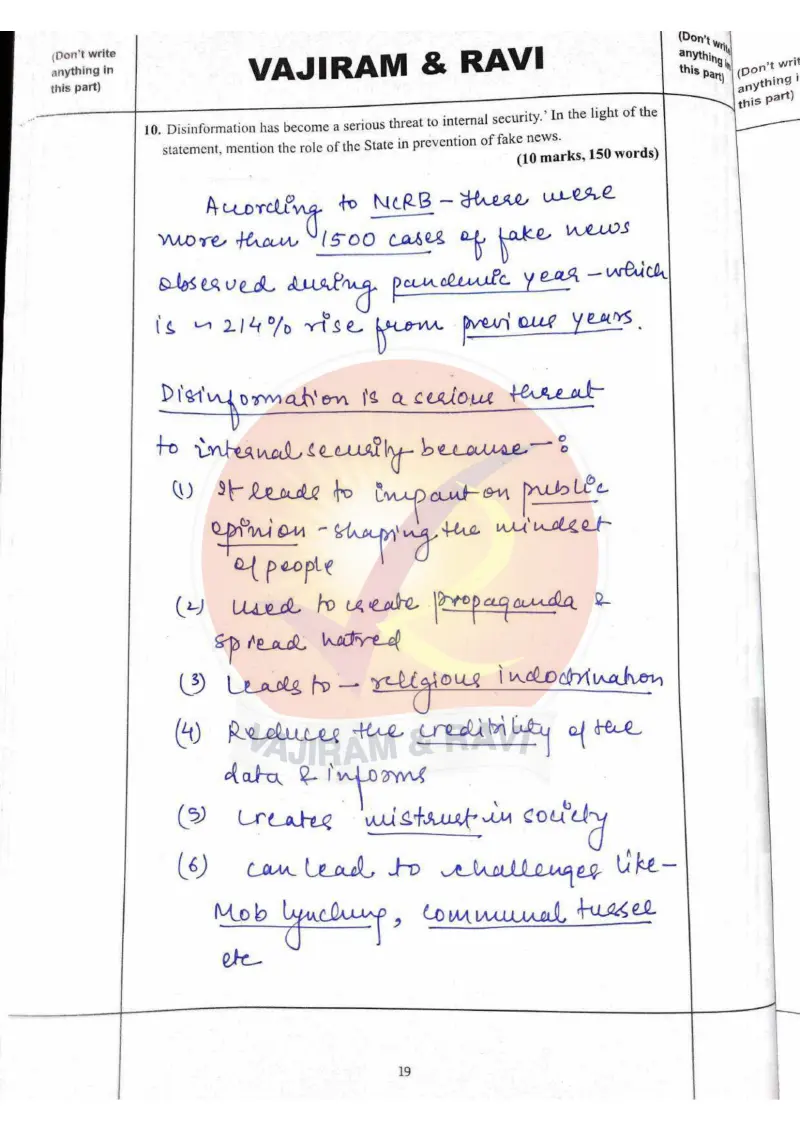 (Don't write
anything in
this part)
VAJIRAM & RAVI
(Don't write
anything in
this part)
(Don't writ
anything i
this part)
10. Disinformation has become a serious threat to internal security.' In the light of the
statement, mention the role of the State in prevention of fake news.
(10 marks, 150 words)
According to NCRB - there were
more than 1500 cases of fake news
observed during pandemic year - which
is ~ 214% rise from previous years.
Disinformation is a serious threat
to internal security because - :
(1) It leads to impact on public
opinion - shaping the mindset
of people
(2) used to create propaganda &
spread hatred
(3) Leads to - religious indoctrination
(4) Reduces the credibility of the
data & informs
(5) creates mistrust in society
(6) can lead to challenges like -
Mob lynching, communal tussle
etc
VAJIRAM & RAVI
19